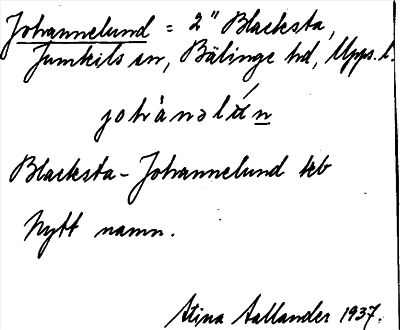 Johannelund = 2" Blacksta,
Jumkils sn, Bälinge hd, Upps. l.
johànəlún
Blacksta - Johannelund teb
Nytt namn.
Stina Aallander 1937.